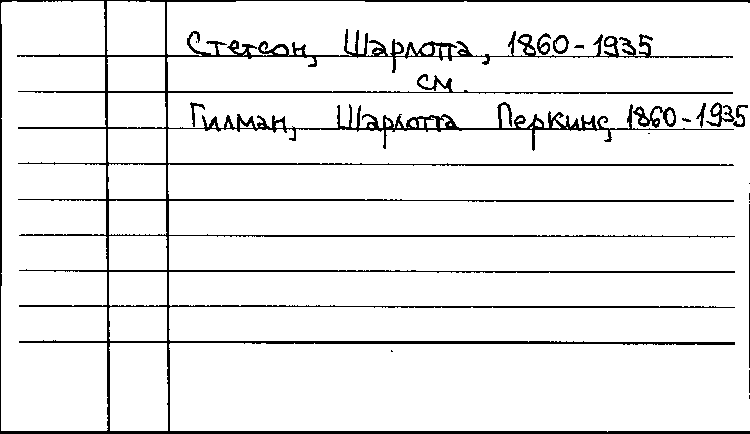 Стетсон, Шарлотта, 1860-1935
см.
Гилман, Шарлотта Перкинс, 1860-1935